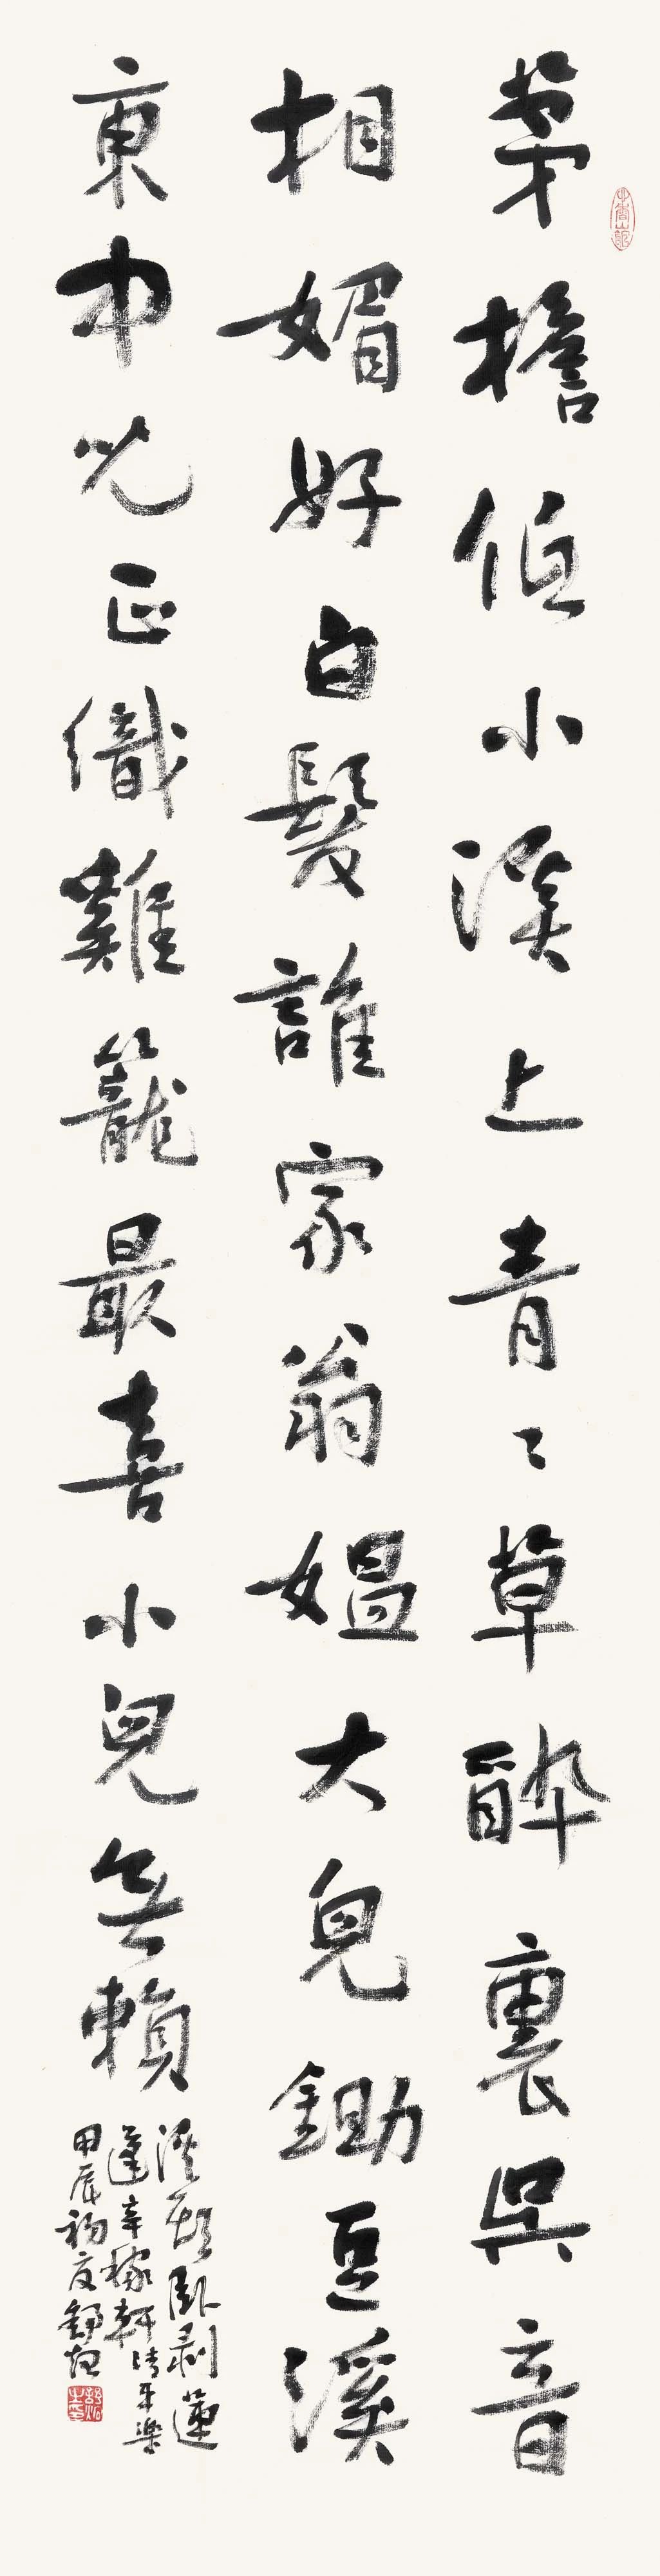 茅檐低小溪上青〻草醉裏吳音
相媚好白髮誰家翁媼大兒鋤豆溪
東中児正織雞籠最喜小兒無賴
溪頭卧剝蓮
蓬辛稼軒清平樂
甲辰初夏舒炯